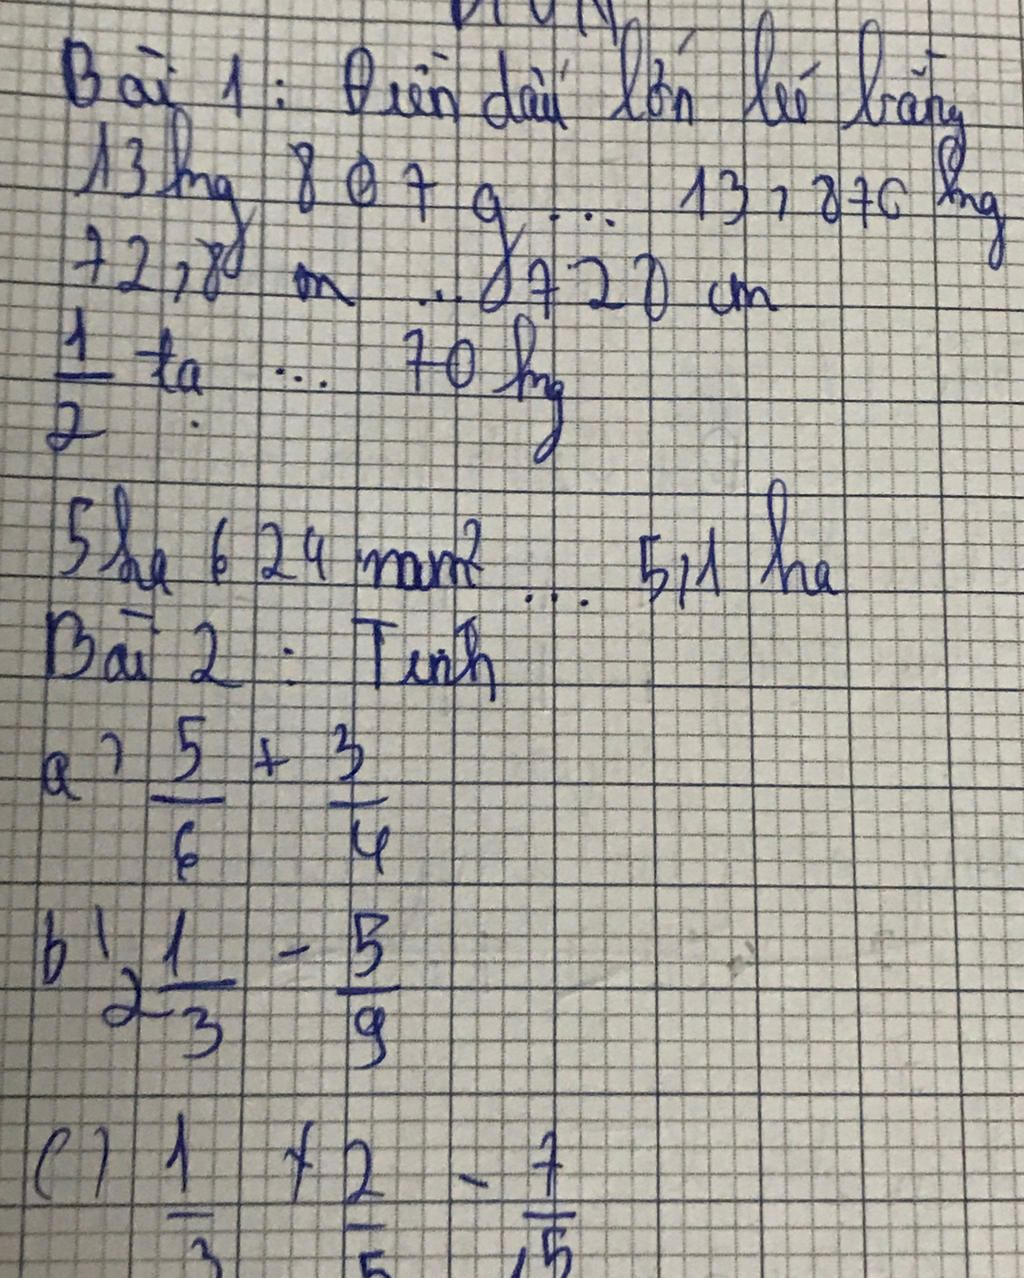 Bài 1: Điền dấu lớn bé bằng
13kg 807 g ... 13,870 kg
72,8 m ... 728 cm
1/2 tạ ... 70 kg
5ha 624 mm² ... 5,1 ha
Bài 2: Tính
a) 5/6 + 3/4
b) 2 1/3 - 5/9
c) 1/3 + 2/5 -